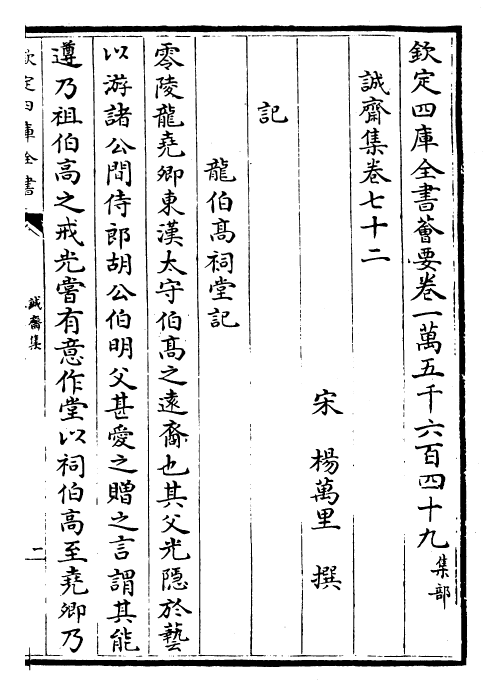 欽定四庫全書薈要卷一萬五千六百四十九集部
誠齋集卷七十二
宋　楊萬里　撰
記
龍伯髙祠堂記
零陵龍堯卿東漢太守伯髙之遠裔也其父光隠於藝
以游諸公間侍郎胡公伯明父甚愛之贈之言謂其能
遵乃祖伯高之戒光嘗有意作堂以祠伯高至堯卿乃
欽定四庫全書
誠齋集
二